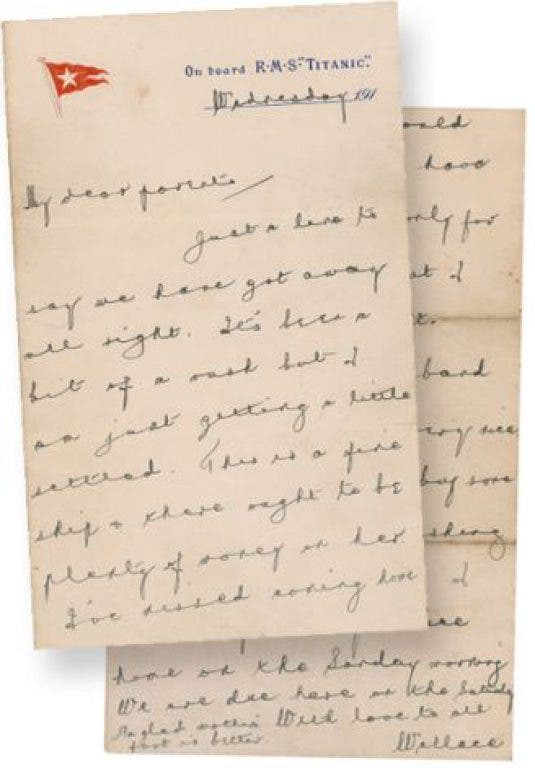 On board R·M·S "TITANIC".
Wednesday 191
My dear parents
Just a line to
say we have got away
all right. It's been a
bit of a rush but I
am just getting a little
settled. This is a fine
ship & there ought to be
plenty of money on her
I've missed coming home
have
only for
I
band
very nice
buy some
home on the Sunday morning
We are due here on the Saturday
I'm glad mother's foot is better.
With love to all
Wallace